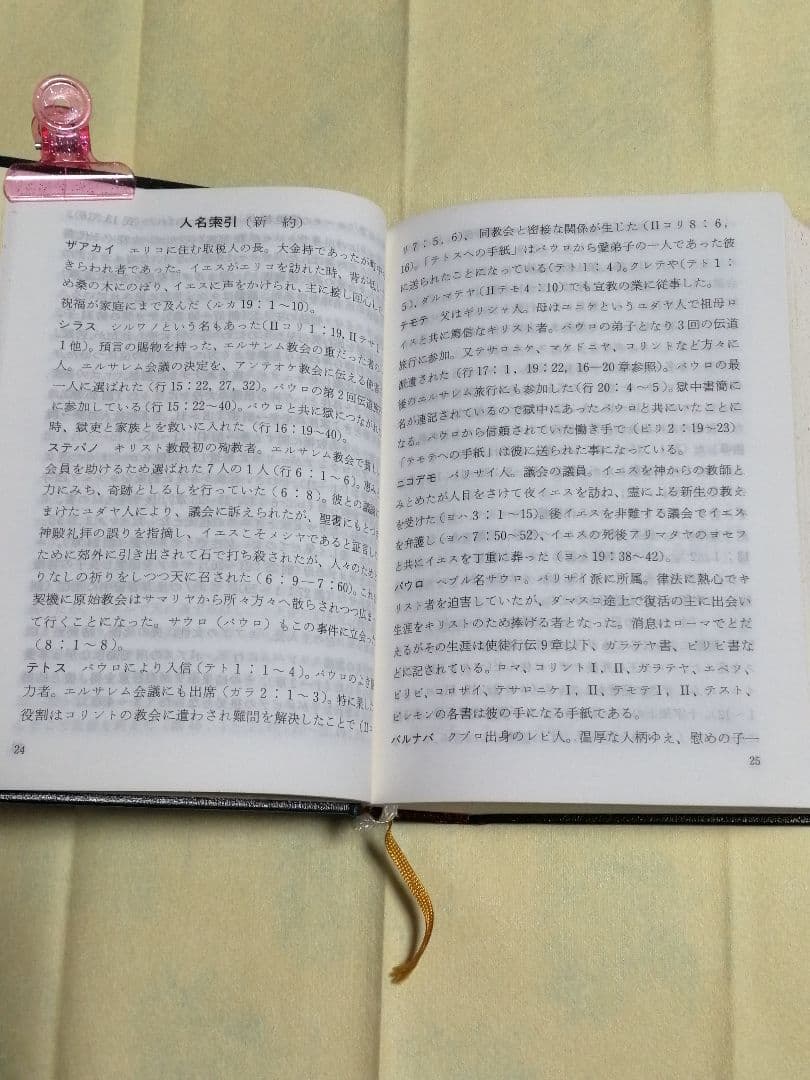 人名索引（新 約）
ザアカイ エリコに住む取税人の長。大金持であったが町中
きらわれ者であった。イエスがエリコを訪れた時、背が低い
め桑の木にのぼり、イエスに声をかけられ、主に接し回心し
祝福が家庭にまで及んだ（ルカ19：1〜10）。
シラス シルワノという名もあった（Ⅱコリ1：19，Ⅱテサ1
1他）。預言の賜物を持った，エルサレム教会の重だった者の
人。エルサレム会議の決定を、アンテオケ教会に伝える使者
一人に選ばれた（行15：22, 27, 32）。パウロの第2回伝道旅
に参加している（行15：22〜40）。パウロと共に獄につながれ
時、獄吏と家族とを救いに入れた（行16：19〜40）。
ステパノ キリスト教最初の殉教者。エルサレム教会で貧し
会員を助けるため選ばれた7人の1人（行6：1〜6）。恵み
力にみち、奇跡としるしを行っていた（6：8）。彼との議論
まけたユダヤ人により、議会に訴えられたが、聖書にもとづき
神殿礼拝の誤りを指摘し、イエスこそメシヤであると証言し
ために郊外に引き出されて石で打ち殺されたが、人々のためと
りなしの祈りをしつつ天に召された（6：9―7：60）。これを
契機に原始教会はサマリヤから所々方々へ散らされつつ広まっ
て行くことになった。サウロ（パウロ）もこの事件に立会っ
（8：1〜8）。
テトス パウロにより入信（テト1：1〜4）。パウロのよき協
力者。エルサレム会議にも出席（ガラ2：1〜3）。特に果した
役割はコリントの教会に遣わされ難問を解決したことで（Ⅱコ
24
リ7：5, 6）、同教会と密接な関係が生じた（Ⅱコリ8：6,
16）。「テトスへの手紙」はパウロから愛弟子の一人であった彼
に送られたことになっている（テト1：4）。クレテや（テト1：
5）、ダルマテヤ（Ⅱテモ4：10）でも宣教の業に従事した。
テモテ 父はギリシャ人。母はユニケというユダヤ人で祖母ロ
イスと共に篤信なキリスト者。パウロの弟子となり3回の伝道
旅行に参加。又テサロニケ、マケドニヤ、コリントなど方々に
派遣された（行17：1、19：22, 16―20章参照）。パウロの最
後のエルサレム旅行にも参加した（行20：4〜5）。獄中書簡に
名が連記されているので獄中にあったパウロと共にいたことに
なる。パウロから信頼されていた働き手で（ピリ2：19〜23）
「テモテへの手紙」は彼に送られた事になっている。
ニコデモ パリサイ人。議会の議員。イエスを神からの教師と
みとめたが人目をさけて夜イエスを訪ね、霊による新生の教え
を受けた（ヨハ3：1〜15）。後イエスを非難する議会でイエス
を弁護し（ヨハ7：50〜52）、イエスの死後アリマタヤのヨセフ
と共にイエスを丁重に葬った（ヨハ19：38〜42）。
パウロ ヘブル名サウロ。パリサイ派に所属。律法に熱心でキ
リスト者を迫害していたが、ダマスコ途上で復活の主に出会い
生涯をキリストのため捧げる者となった。消息はローマでとだ
えるがその生涯は使徒行伝9章以下、ガラテヤ書、ピリピ書な
どに記されている。ロマ、コリントⅠ, Ⅱ、ガラテヤ、エペソ、
ピリピ、コロサイ、テサロニケⅠ, Ⅱ、テモテⅠ, Ⅱ、テスト、
ピレモンの各書は彼の手になる手紙である。
バルナバ クプロ出身のレビ人。温厚な人柄ゆえ、慰めの子―
25